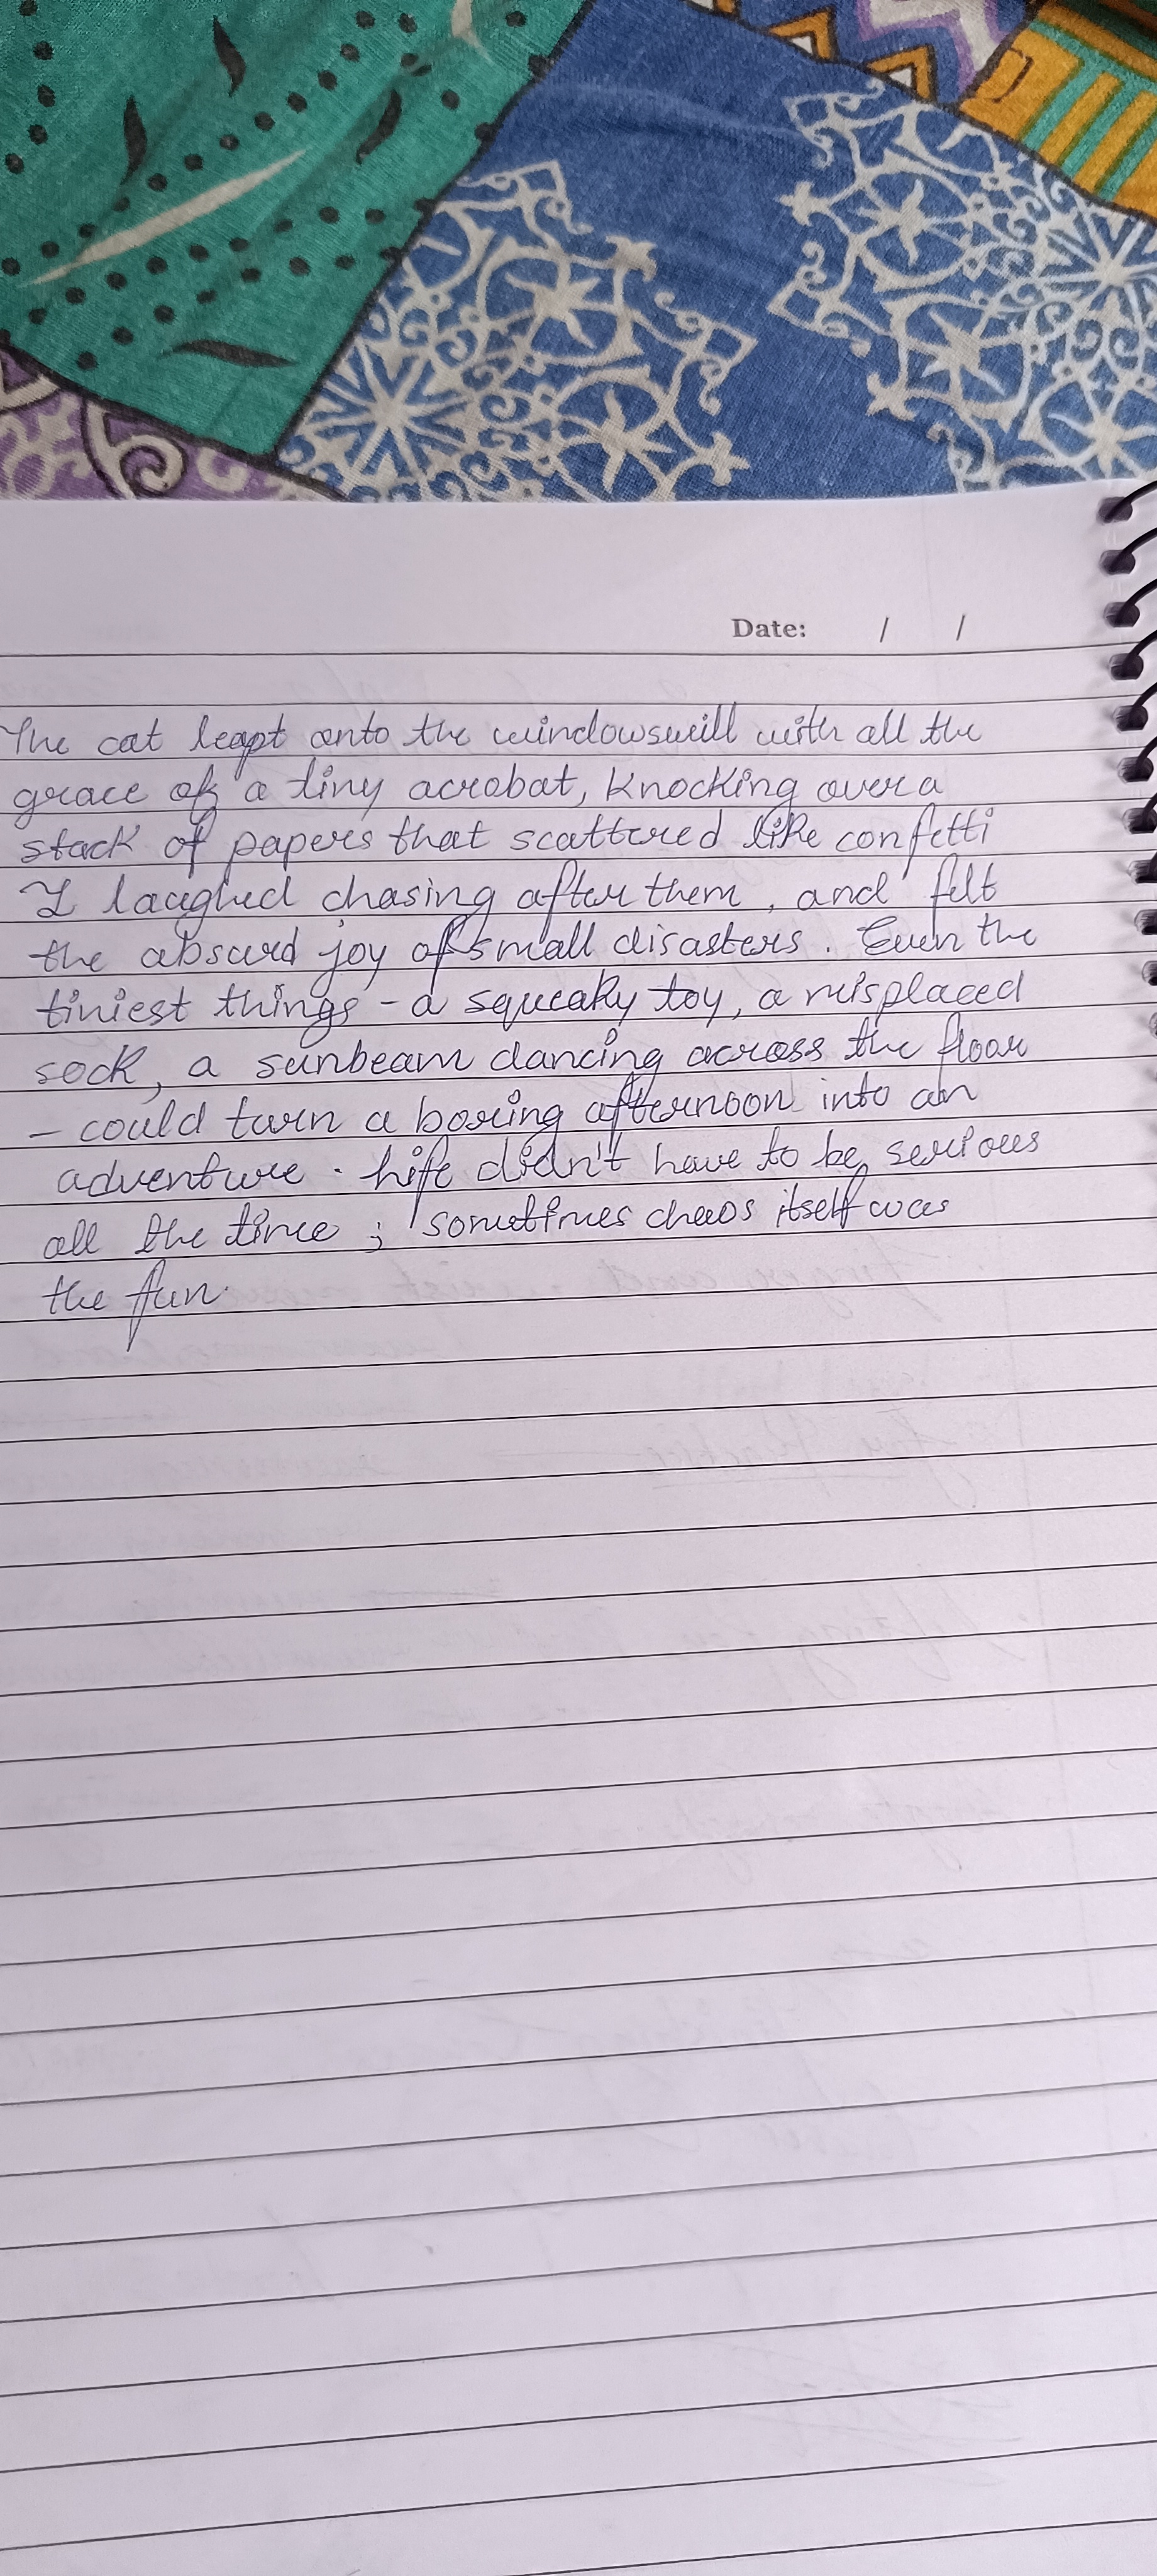 Date: / /
The cat leapt onto the windowswill with all the
grace of a tiny acrobat, knocking over a
stack of papers that scattered like confetti
I laughed chasing after them, and felt
the absurd joy of small disasters. Even the
tiniest things - a squeaky toy, a misplaced
sock, a sunbeam dancing across the floor
- could turn a boring afternoon into an
adventure. Life didn't have to be serious
all the time; sometimes chaos itself was
the fun.